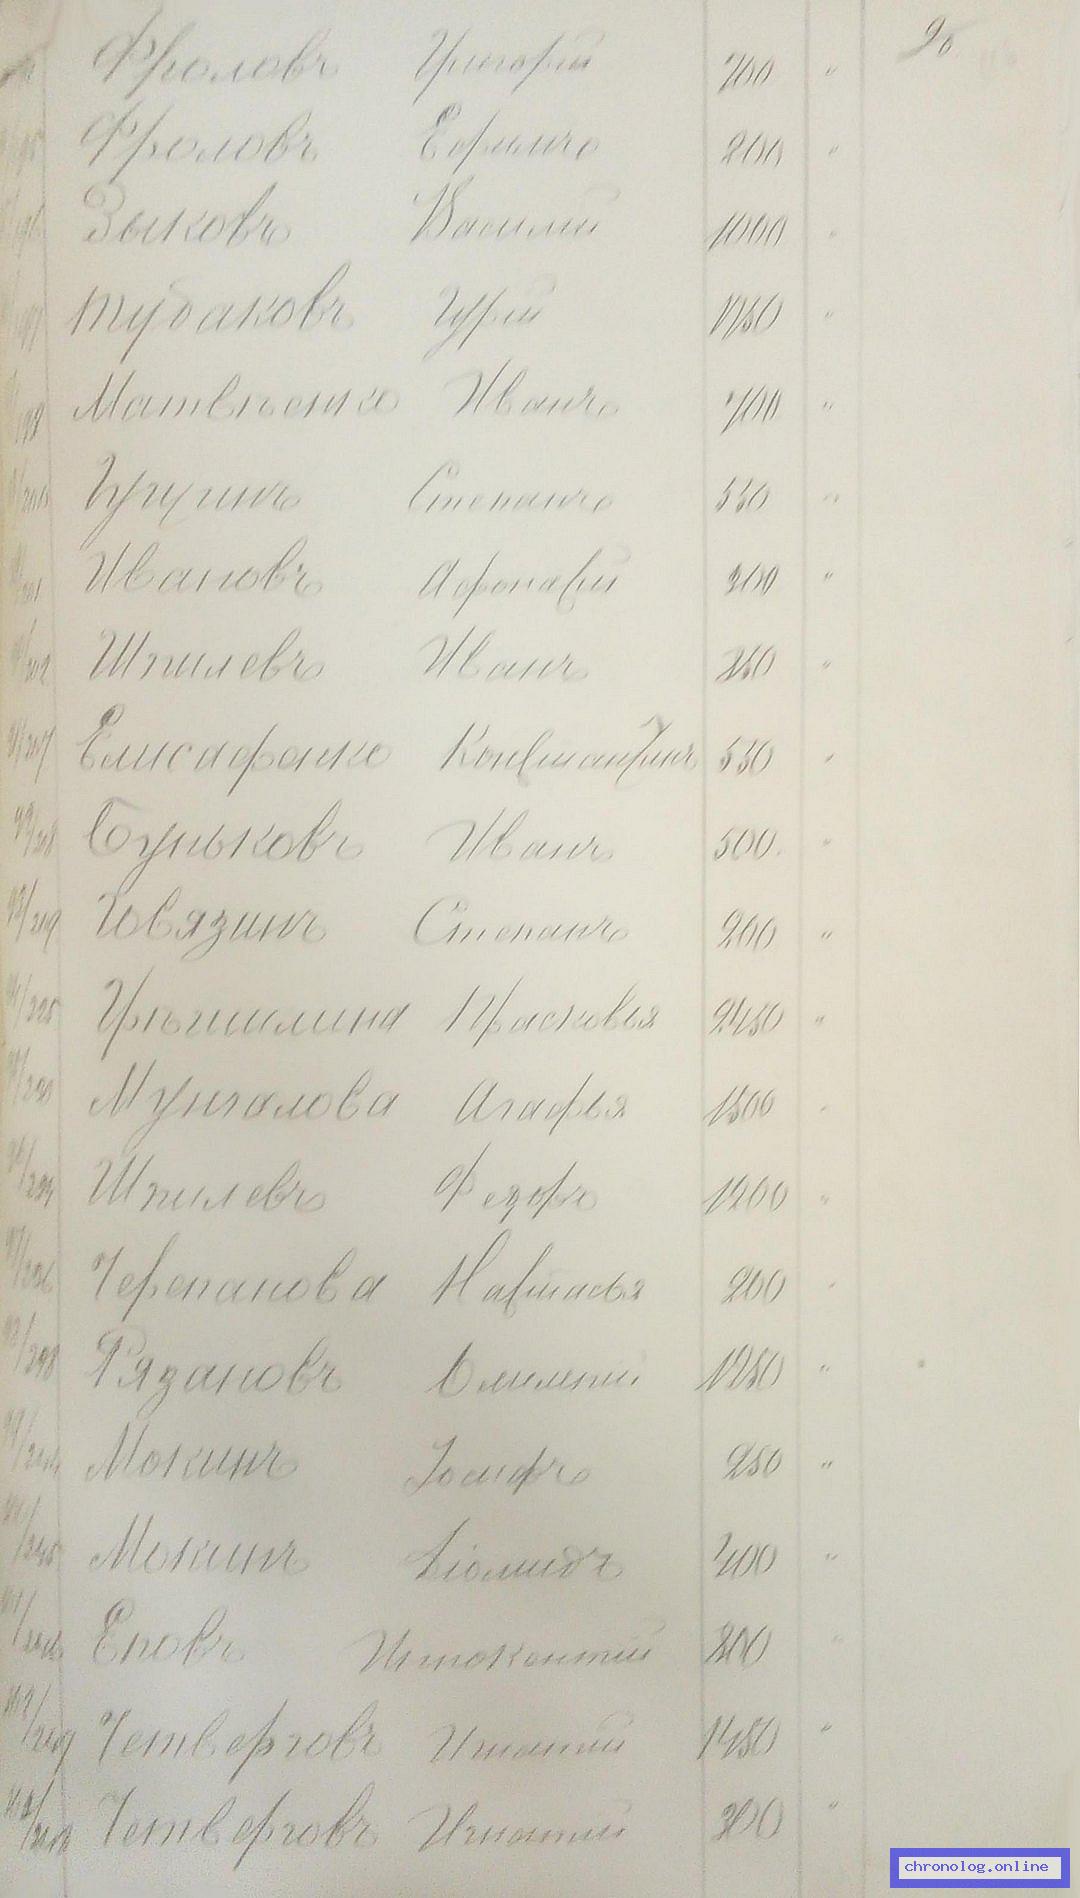 96
Фроловъ Григорій 700 "
Фроловъ Ефимъ 800 "
Зыковъ Василій 1000 "
Тудаковъ Гурій 1750 "
198 Матвѣенко Иванъ 700 "
Степанъ 550 "
201 Ивановъ Афонасій 200 "
202 Шпилевъ Иванъ 350 "
217 Елисафенко Константинъ 550 "
218 Буньковъ Иванъ 500 "
93/219 Говязинъ Степанъ 200 "
94/225 Прасковья 2450 "
Мунгалова Агафья 1500 "
Шпилевъ Федоръ 1200 "
Черепанова Настасья 200 "
Рязановъ 1250 "
Мокинъ Іосифъ 250 "
Мокинъ Діомидъ 400 "
Еповъ Иннокентій 300 "
Четверговъ Игнатій 1450 "
Четверговъ Игнатій 300 "
chronolog.online